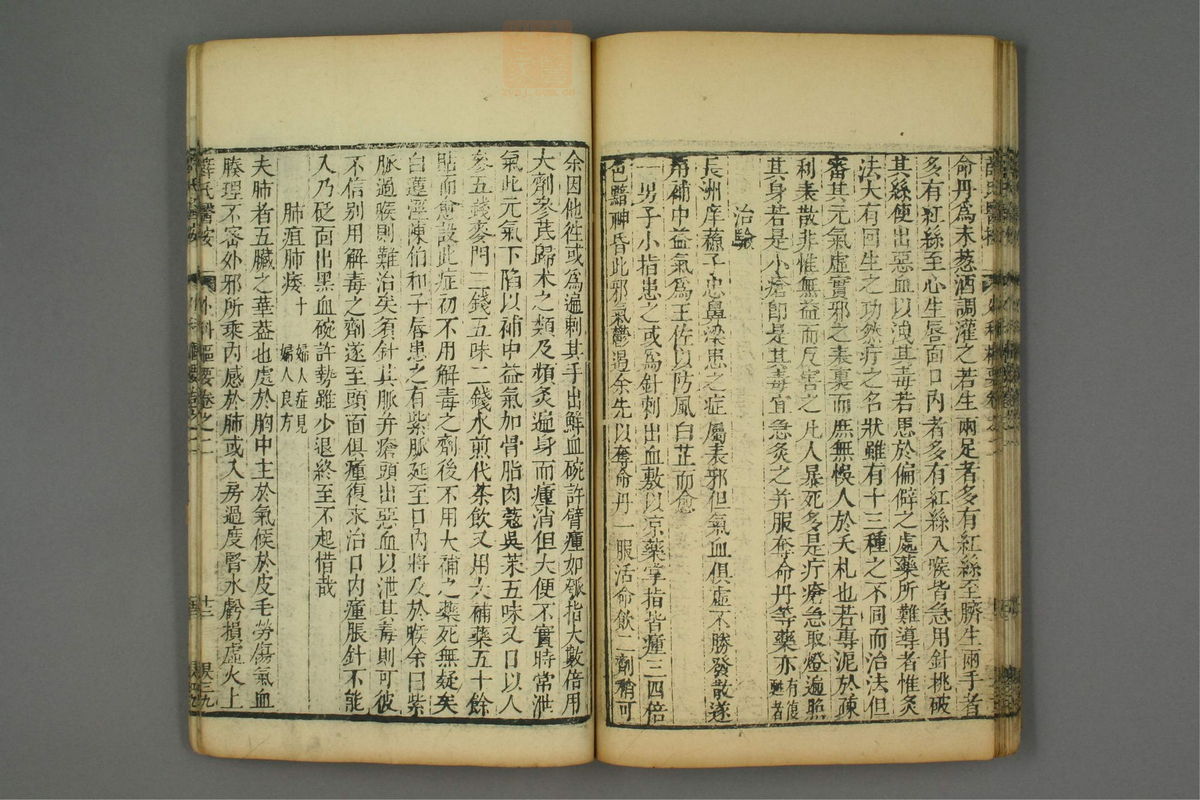 命丹爲末葱酒調灌之若生兩足者多有紅絲至臍生兩手者
多有紅絲至心生唇面口內者多有紅絲入喉皆急用針挑破
其絲使出惡血以洩其毒若患於偏僻之處藥所難導者惟灸
法大有回生之功然疔之名狀雖有十三種之不同而治法但
審其元氣虛實邪之表裏而庶無悞人於夭札也若專泥於疎
利表散非惟無益而反害之凡人暴死多是疔瘡急取燈遍照
其身若是小瘡即是其毒宜急灸之并服奪命丹等藥亦有復甦者
治驗
長洲庠蘇子忠鼻梁患之症屬表邪但氣血俱虛不勝發散遂
用補中益氣爲主佐以防風白芷而愈
一男子小指患之或爲針刺出血敷以凉藥掌指皆腫三四倍
色黯神昏此邪氣鬱遏余先以奪命丹一服活命飲二劑稍可
余因他徃或爲遍刺其手出鮮血碗許臂腫如瓠指大數倍用
大劑參芪歸朮之類及頻灸遍身而腫消但大便不實時常泄
氣此元氣下陷以補中益氣加骨脂肉蔻吳茱五味又日以人
參五錢麥門二錢五味二錢水煎代茶飲又用大補藥五十餘
貼而愈設此症初不用解毒之劑後不用大補之藥死無疑矣
白蓮涇陳伯和子唇患之有紫脉延至口內將及於喉余曰紫
脉過喉則難治矣須針其脉并瘡頭出惡血以泄其毒則可彼
不信别用解毒之劑遂至頭面俱腫復來治口內腫脹針不能
入乃砭面出黑血碗許勢雖少退終至不起惜哉
肺疽肺痿十 婦人症見婦人良方
夫肺者五臟之華葢也處於胸中主於氣候於皮毛勞傷氣血
腠理不密外邪所乘內感於肺或入房過度腎水虧損虛火上
薛氏醫按 外科樞要卷之二 十二